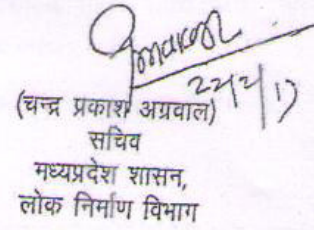 22/2/17
(चन्द्र प्रकाश अग्रवाल)
सचिव
मध्यप्रदेश शासन,
लोक निर्माण विभाग